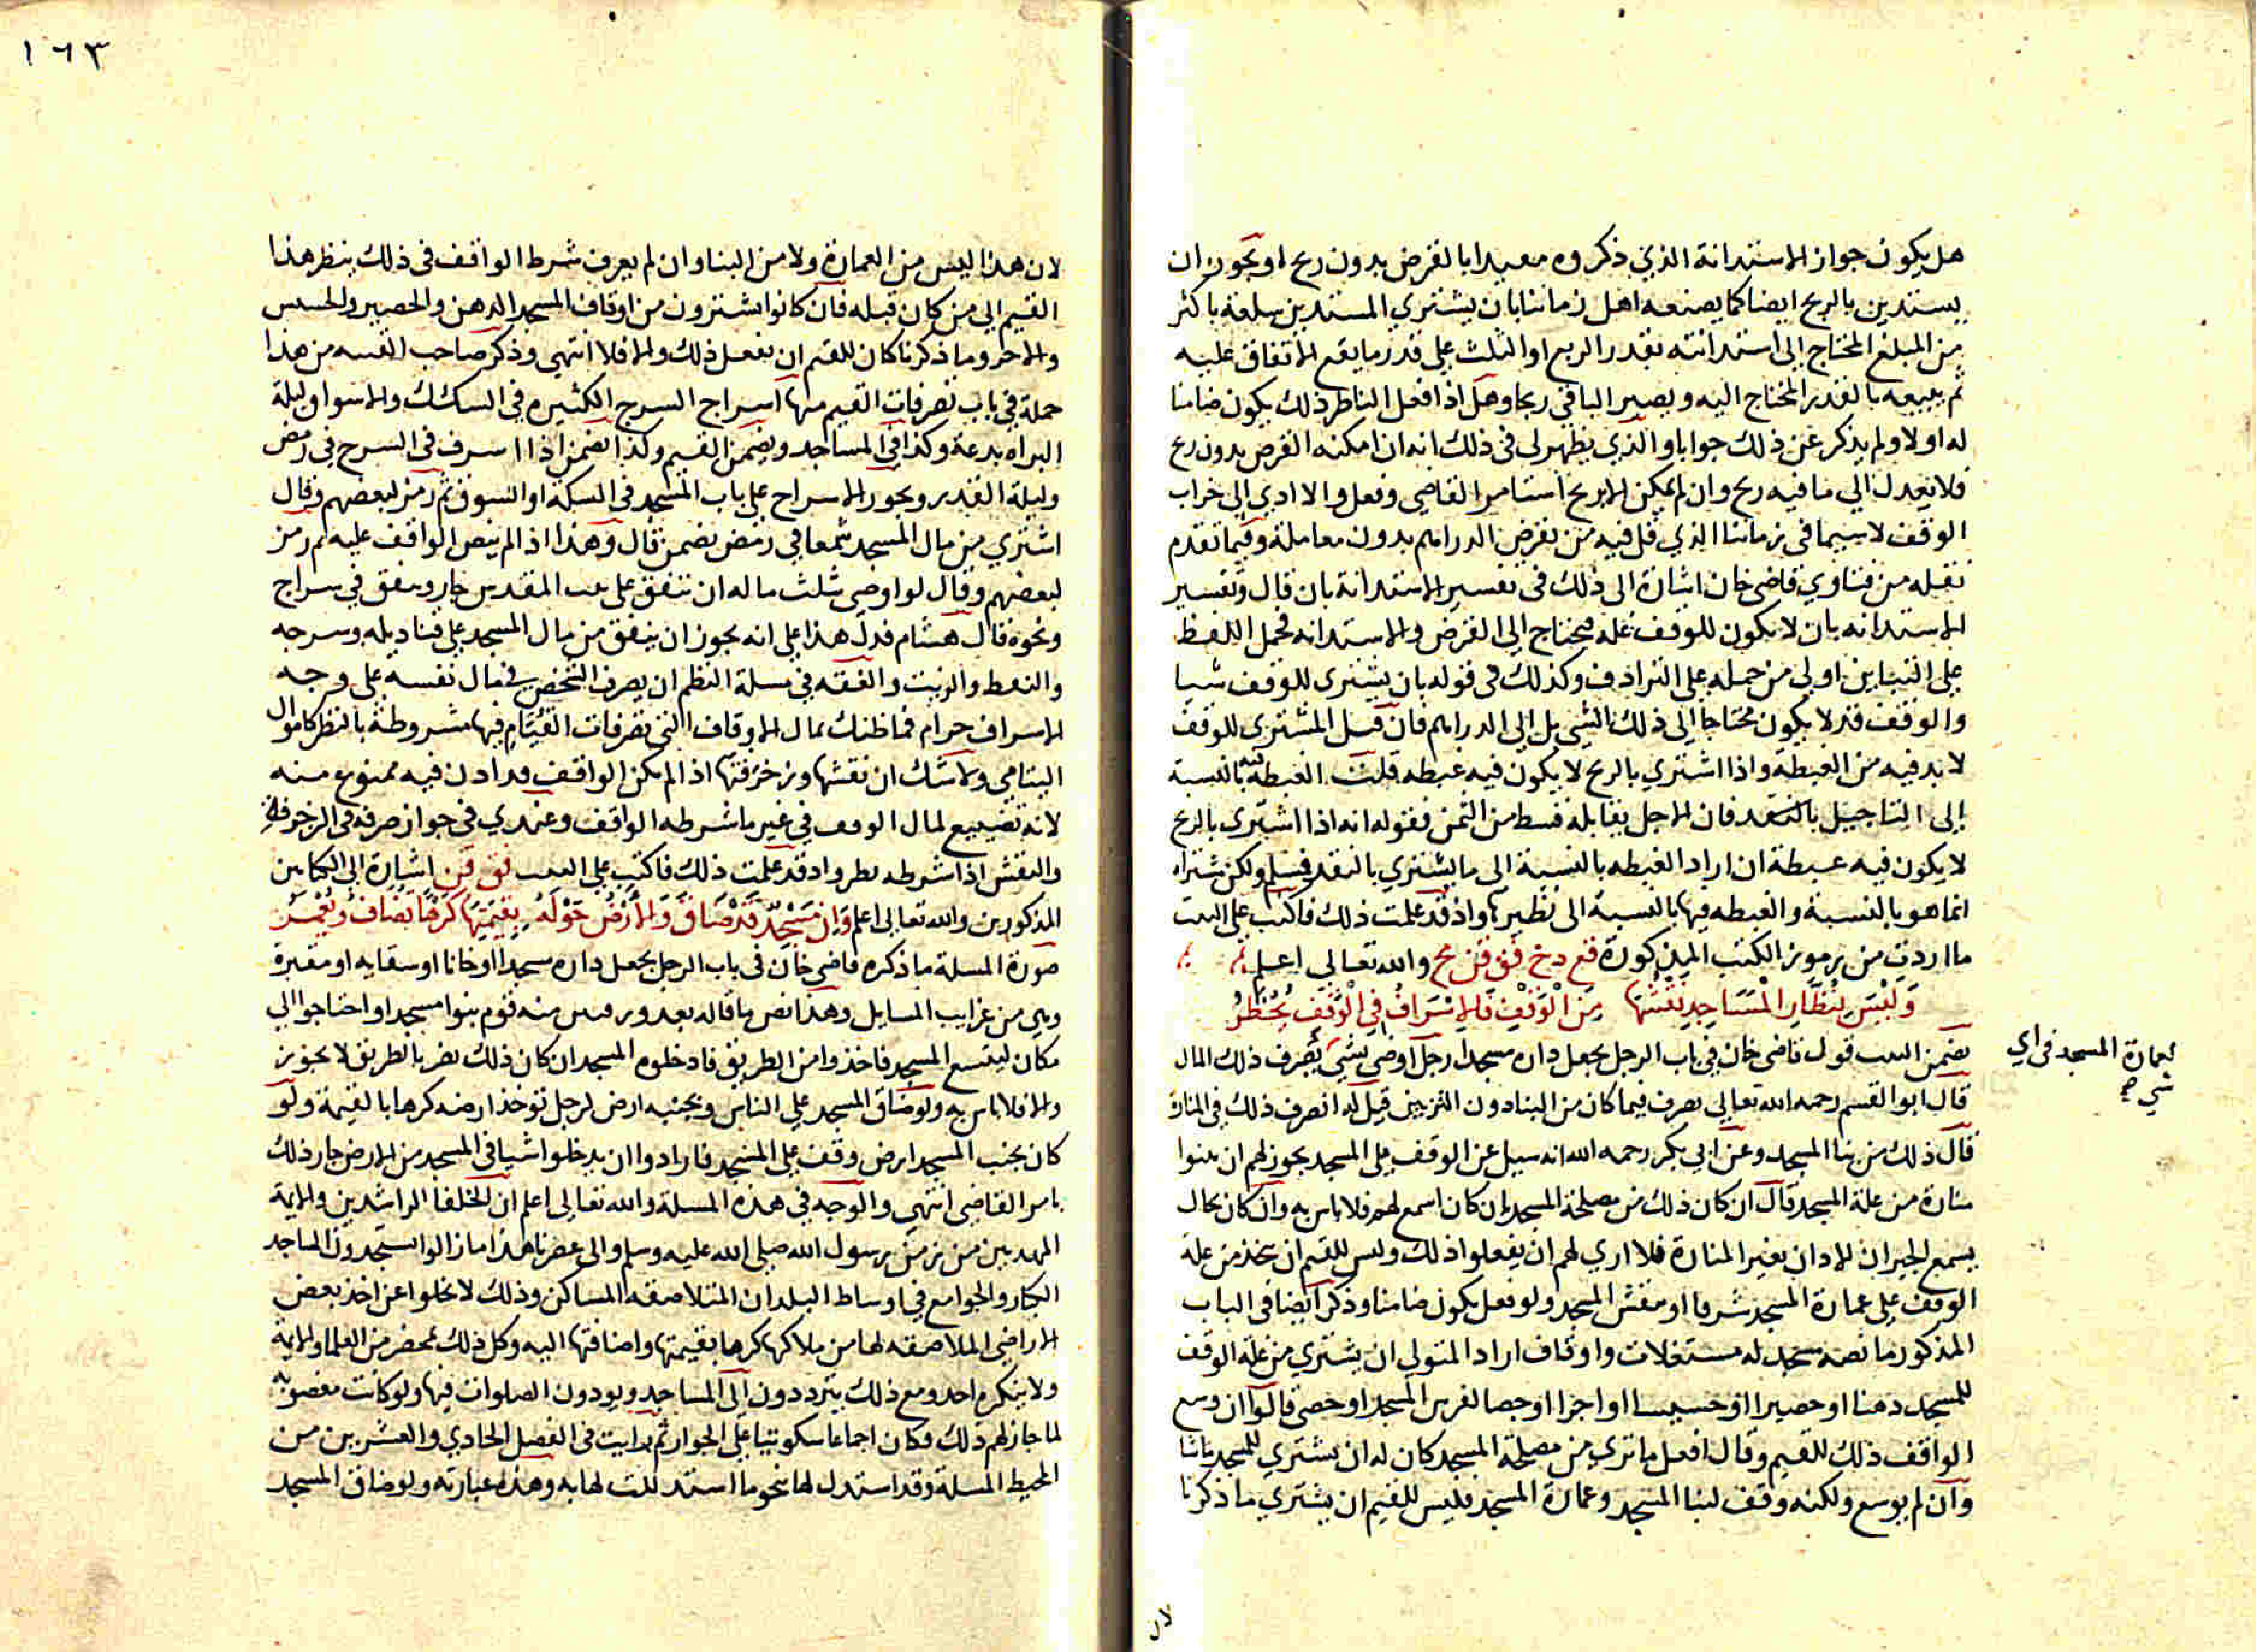 هل يكون جواز الاستدانة الذي ذكروه مقيدا بالقرض بدون ربح او يجوز ان
يستدين بالربح ايضا كما يصنعه اهل زماننا بان يشتري المستدين سلعة باكثر
من المبلغ المحتاج الى استدانته بقدر الربع او الثلث على قدر ما يقع الاتفاق عليه
ثم يبيعه بالقدر المحتاج اليه ويصير الباقي ربحا وهل اذا فعل الناظر ذلك يكون ضامنا
له او لا ولم يذكر عن ذلك جوابا والذي يظهر لى فى ذلك انه ان امكنه القرض بدون ربح
فلا يعدل الي ما فيه ربح وان لم يمكن الا بربح استامر القاضي وفعل والا ادي الى خراب
الوقف لا سيما فى زماننا الذي قل فيه من يقرض الدراهم بدون معاملة وفيما تقدم
نقله من فتاوي قاضى خان اشارة الى ذلك فى تفسير الاستدانة بان قال وتفسير
الاستدانه بان لا يكون للوقف غله فيحتاج الى القرض والاستدانه فحمل اللفظ
على التباين اولى من حمله على الترادف وكذلك فى قوله بان يشترى للوقف شيا
والوقف قد لا يكون محتاجا الى ذلك الشي بل الى الدراهم فان قيل المشترى للوقف
لا بد فيه من الغبطة واذا اشتري بالربح لا يكون فيه غبطه قلت الغبطة فيه بالنسبة
الى التاجيل بالنقد فان الاجل يقابله قسط من الثمن فقوله انه اذا اشترى بالربح
لا يكون فيه غبطة ان اراد الغبطه بالنسبة الى ما يشتري بالنقد فيسلم ولكن شراه
انما هو بالنسية والغبطه فيها بالنسبة الى نظيرها واذ قد علمت ذلك فاكتب على البيت
ما اردت من رموز الكتب المذكورة قع دخ فق قن مح والله تعالي اعلم
وليس لنظار المساجد نقشها من الوقف فالاسراف في الوقف يحظر
تضمن البيت قول قاضى خان فى باب الرجل يجعل داره مسجدا رجل اوصى بشي يصرف ذلك المال
لعمارة المسجد فى اي
شي صح
قال ابو القسم رحمه الله تعالى يصرف فيما كان من البنا دون التزيين قيل له انصرف ذلك فى المنارة
قال ذلك من بنا المسجد وعن ابي بكر رحمه الله انه سيل عن الوقف على المسجد يجوز لهم ان يبنوا
منارة من غلة المسجد قال ان كان ذلك من مصلحة المسجد بان كان اسمع لهم فلا باس به وان كان بحال
يسمع الجيران الاذان بغير المنارة فلا اري لهم ان يفعلوا ذلك وليس للقيم ان يتخذ من غلة
الوقف على عمارة المسجد شرفا او ينقش المسجد ولو فعل يكون ضامنا وذكر ايضا فى الباب
المذكور ما نصه مسجد له مستغلات واوقاف اراد المتولي ان يشتري من غلة الوقف
للمسجد دهنا او حصيرا او حشيشا او اجرا او جصا لفرش المسجد او حصى قالوا ان وسع
الواقف ذلك للقيم وقال افعل ما تري من مصلحة المسجد كان له ان يشتري للمسجد ما شا
وان لم يوسع ولكنه وقف لبنا المسجد وعمارة المسجد فليس للقيم ان يشتري ما ذكرنا
لان
١٦٣
لان هذا ليس من العمارة ولا من البنا وان لم يعرف شرط الواقف فى ذلك ينظر هذا
القيم الى من كان قبله فان كانوا يشترون من اوقاف المسجد الدهن والحصير والحشيش
والاجر وما ذكرنا كان للقيم ان يفعل ذلك والا فلا انتهى وذكر صاحب القنيه من هذا
جملة فى باب تصرفات القيم منها اسراج السرج الكثيره في السكك والاسواق ليلة
البراه بدعة وكذا فى المساجد ويضمن القيم وكذا يضمن اذا اسرف فى السرج فى رمضن
وليلة القدر ويجوز الاسراج على باب المسجد فى السكة او السوق ثم رمز لبعضهم وقال
اشتري من مال المسجد شمعا في رمضن يضمن قال وهذا اذا لم ينص الواقف عليه ثم رمز
لبعضهم وقال لو اوصى بثلث ماله ان تنفق على بيت المقدس جاز وينفق في سراج
ونحوه قال هشام فدل هذا على انه يجوز ان ينفق من مال المسجد على قناديله وسرجه
والنفط والزيت والفقه في مسلة النظم ان يصرف الشخص فى مال نفسه على وجه
الاسراف حرام فما ظنك بمال الاوقاف التى تصرفات القيام فيها مشروطة بالنظر كاموال
اليتامى ولا شك ان نقشها وزخرفتها اذا لم يكن الواقف قد اذن فيه ممنوع منه
لانه تضييع لمال الوقف في غير ما شرطه الواقف وعندي فى جواز صرفه فى الزخرفة
والنقش اذا شرطه نظر واذ قد علمت ذلك فاكتب على البيت فق قن اشارة الى الكتابين
المذكورين والله تعالى اعلم وان مسجد قد ضاق والارض حوله بقيمتها كرها تضاف وتغمر
صورة المسلة ما ذكره قاضى خان فى باب الرجل يجعل داره مسجدا او خانا او سقايه او مقبرة
وهى من غرايب المسايل وهذا نص ما قاله بعد ورقتين منه قوم بنوا مسجدا واحتاجوا الي
مكان ليتسع المسجد فاخذوا من الطريق فادخلوه المسجد ان كان ذلك يضر بالطريق لا يجوز
والا فلا باس به ولو ضاق المسجد على الناس وبجنبه ارض لرجل توخذ ارضه كرها بالقيمة ولو
كان بجنب المسجد ارض وقف على المسجد فارادوا ان يدخلوا شيا فى المسجد من الارض جاز ذلك
بامر القاضى انتهى والوجه في هذه المسلة والله تعالى اعلم ان الخلفا الراشدين والايمة
المهديين من زمن رسول الله صلى الله عليه وسلم والى عصرنا هذا ما زالوا يستجدون المساجد
الكبار والجوامع في اوساط البلدان المتلاصقه المساكن وذلك لا يخلوا عن اخذ بعض
الاراضى الملاصقه لها من ملاكها كرها بقيمتها واضافتها اليه وكل ذلك بمحضر من العلما والايمة
ولا ينكره احد ومع ذلك يترددون الى المساجد ويودون الصلوات فيها ولو كانت مغصوبة
لما جاز لهم ذلك فكان اجماعا سكوتيا على الجواز ثم رايت فى الفصل الحادي والعشرين من
المحيط المسلة وقد استدل لها بنحو ما استدللت لها به وهذه عبارته ولو ضاق المسجد